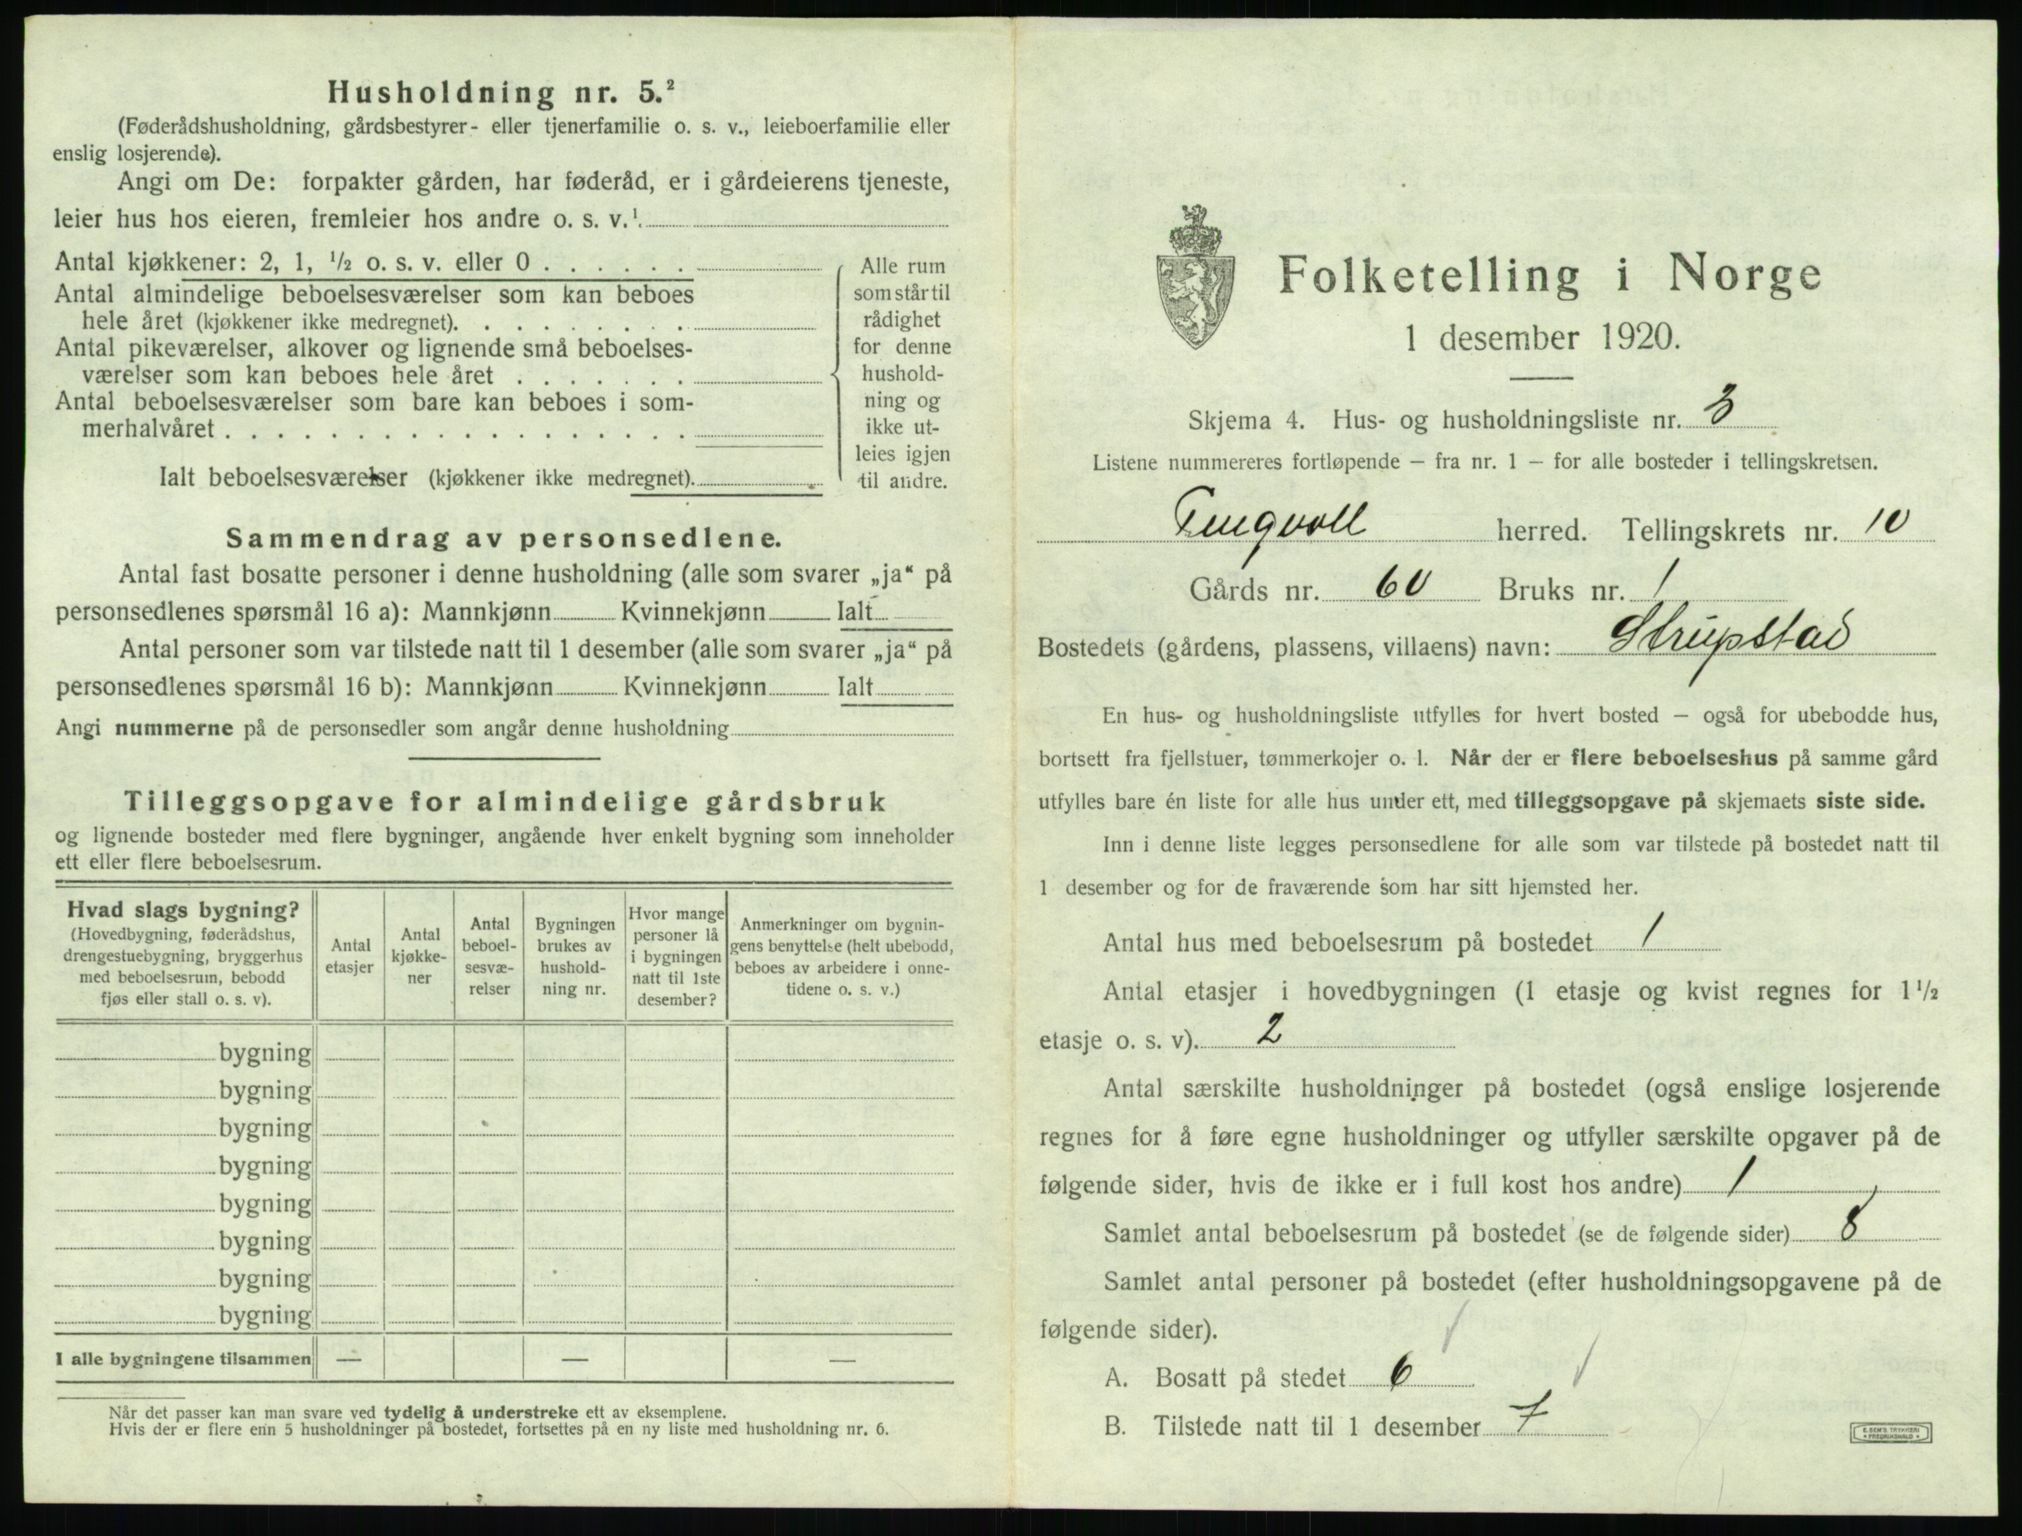 Husholdning nr. 5.²
(Føderådshusholdning, gårdsbestyrer- eller tjenerfamilie o. s. v., leieboerfamilie eller
enslig losjerende).
Angi om De: forpakter gården, har føderåd, er i gårdeierens tjeneste,
leier hus hos eieren, fremleier hos andre o. s. v.¹
Antal kjøkkener: 2, 1, ½ o. s. v. eller 0
Antal almindelige beboelsesværelser som kan beboes
hele året (kjøkkener ikke medregnet).
Antal pikeværelser, alkover og lignende små beboelses-
værelser som kan beboes hele året
Antal beboelsesværelser som bare kan beboes i som-
merhalvåret
Ialt beboelsesværelser (kjøkkener ikke medregnet).
Alle rum
som står til
rådighet
for denne
hushold-
ning og
ikke ut-
leies igjen
til andre.
Sammendrag av personsedlene.
Antal fast bosatte personer i denne husholdning (alle som svarer „ja“ på
personsedlenes spørsmål 16 a): Mannkjønn Kvinnekjønn Ialt
Antal personer som var tilstede natt til 1 desember (alle som svarer „ja“ på
personsedlenes spørsmål 16 b): Mannkjønn Kvinnekjønn Ialt
Angi nummerne på de personsedler som angår denne husholdning
Tilleggsopgave for almindelige gårdsbruk
og lignende bosteder med flere bygninger, angående hver enkelt bygning som inneholder
ett eller flere beboelsesrum.
Hvad slags bygning?
(Hovedbygning, føderådshus,
drengestuebygning, bryggerhus
med beboelsesrum, bebodd
fjøs eller stall o. s. v).
Antal
etasjer
Antal
kjøkke-
ner
Antal
beboel-
sesvæ-
relser
Bygningen
brukes av
hushold-
ning nr.
Hvor mange
personer lå
i bygningen
natt til 1ste
desember?
Anmerkninger om bygnin-
gens benyttelse (helt ubebodd,
beboes av arbeidere i onne-
tidene o. s. v.)
bygning
bygning
bygning
bygning
bygning
bygning
bygning
bygning
I alle bygningene tilsammen — — —
Når det passer kan man svare ved tydelig å understreke ett av eksemplene.
Hvis der er flere enn 5 husholdninger på bostedet, fortsettes på en ny liste med husholdning nr. 6.
Folketelling i Norge
1 desember 1920.
Skjema 4. Hus- og husholdningsliste nr. 3
Listene nummereres fortløpende — fra nr. 1 — for alle bosteder i tellingskretsen.
Tingvoll herred. Tellingskrets nr. 10
Gårds nr. 60 Bruks nr. 1
Bostedets (gårdens, plassens, villaens) navn: Strupstad
En hus- og husholdningsliste utfylles for hvert bosted — også for ubebodde hus,
bortsett fra fjellstuer, tømmerkojer o. l. Når der er flere beboelseshus på samme gård
utfylles bare én liste for alle hus under ett, med tilleggsopgave på skjemaets siste side.
Inn i denne liste legges personsedlene for alle som var tilstede på bostedet natt til
1 desember og for de fraværende som har sitt hjemsted her.
Antal hus med beboelsesrum på bostedet 1
Antal etasjer i hovedbygningen (1 etasje og kvist regnes for 1½
etasje o. s. v). 2
Antal særskilte husholdninger på bostedet (også enslige losjerende
regnes for å føre egne husholdninger og utfyller særskilte opgaver på de
følgende sider, hvis de ikke er i full kost hos andre) 1
Samlet antal beboelsesrum på bostedet (se de følgende sider) 8
Samlet antal personer på bostedet (efter husholdningsopgavene på de
følgende sider).
A. Bosatt på stedet 6
B. Tilstede natt til 1 desember 7
E. SEM'S TRYKKERI
FREDRIKSHALD